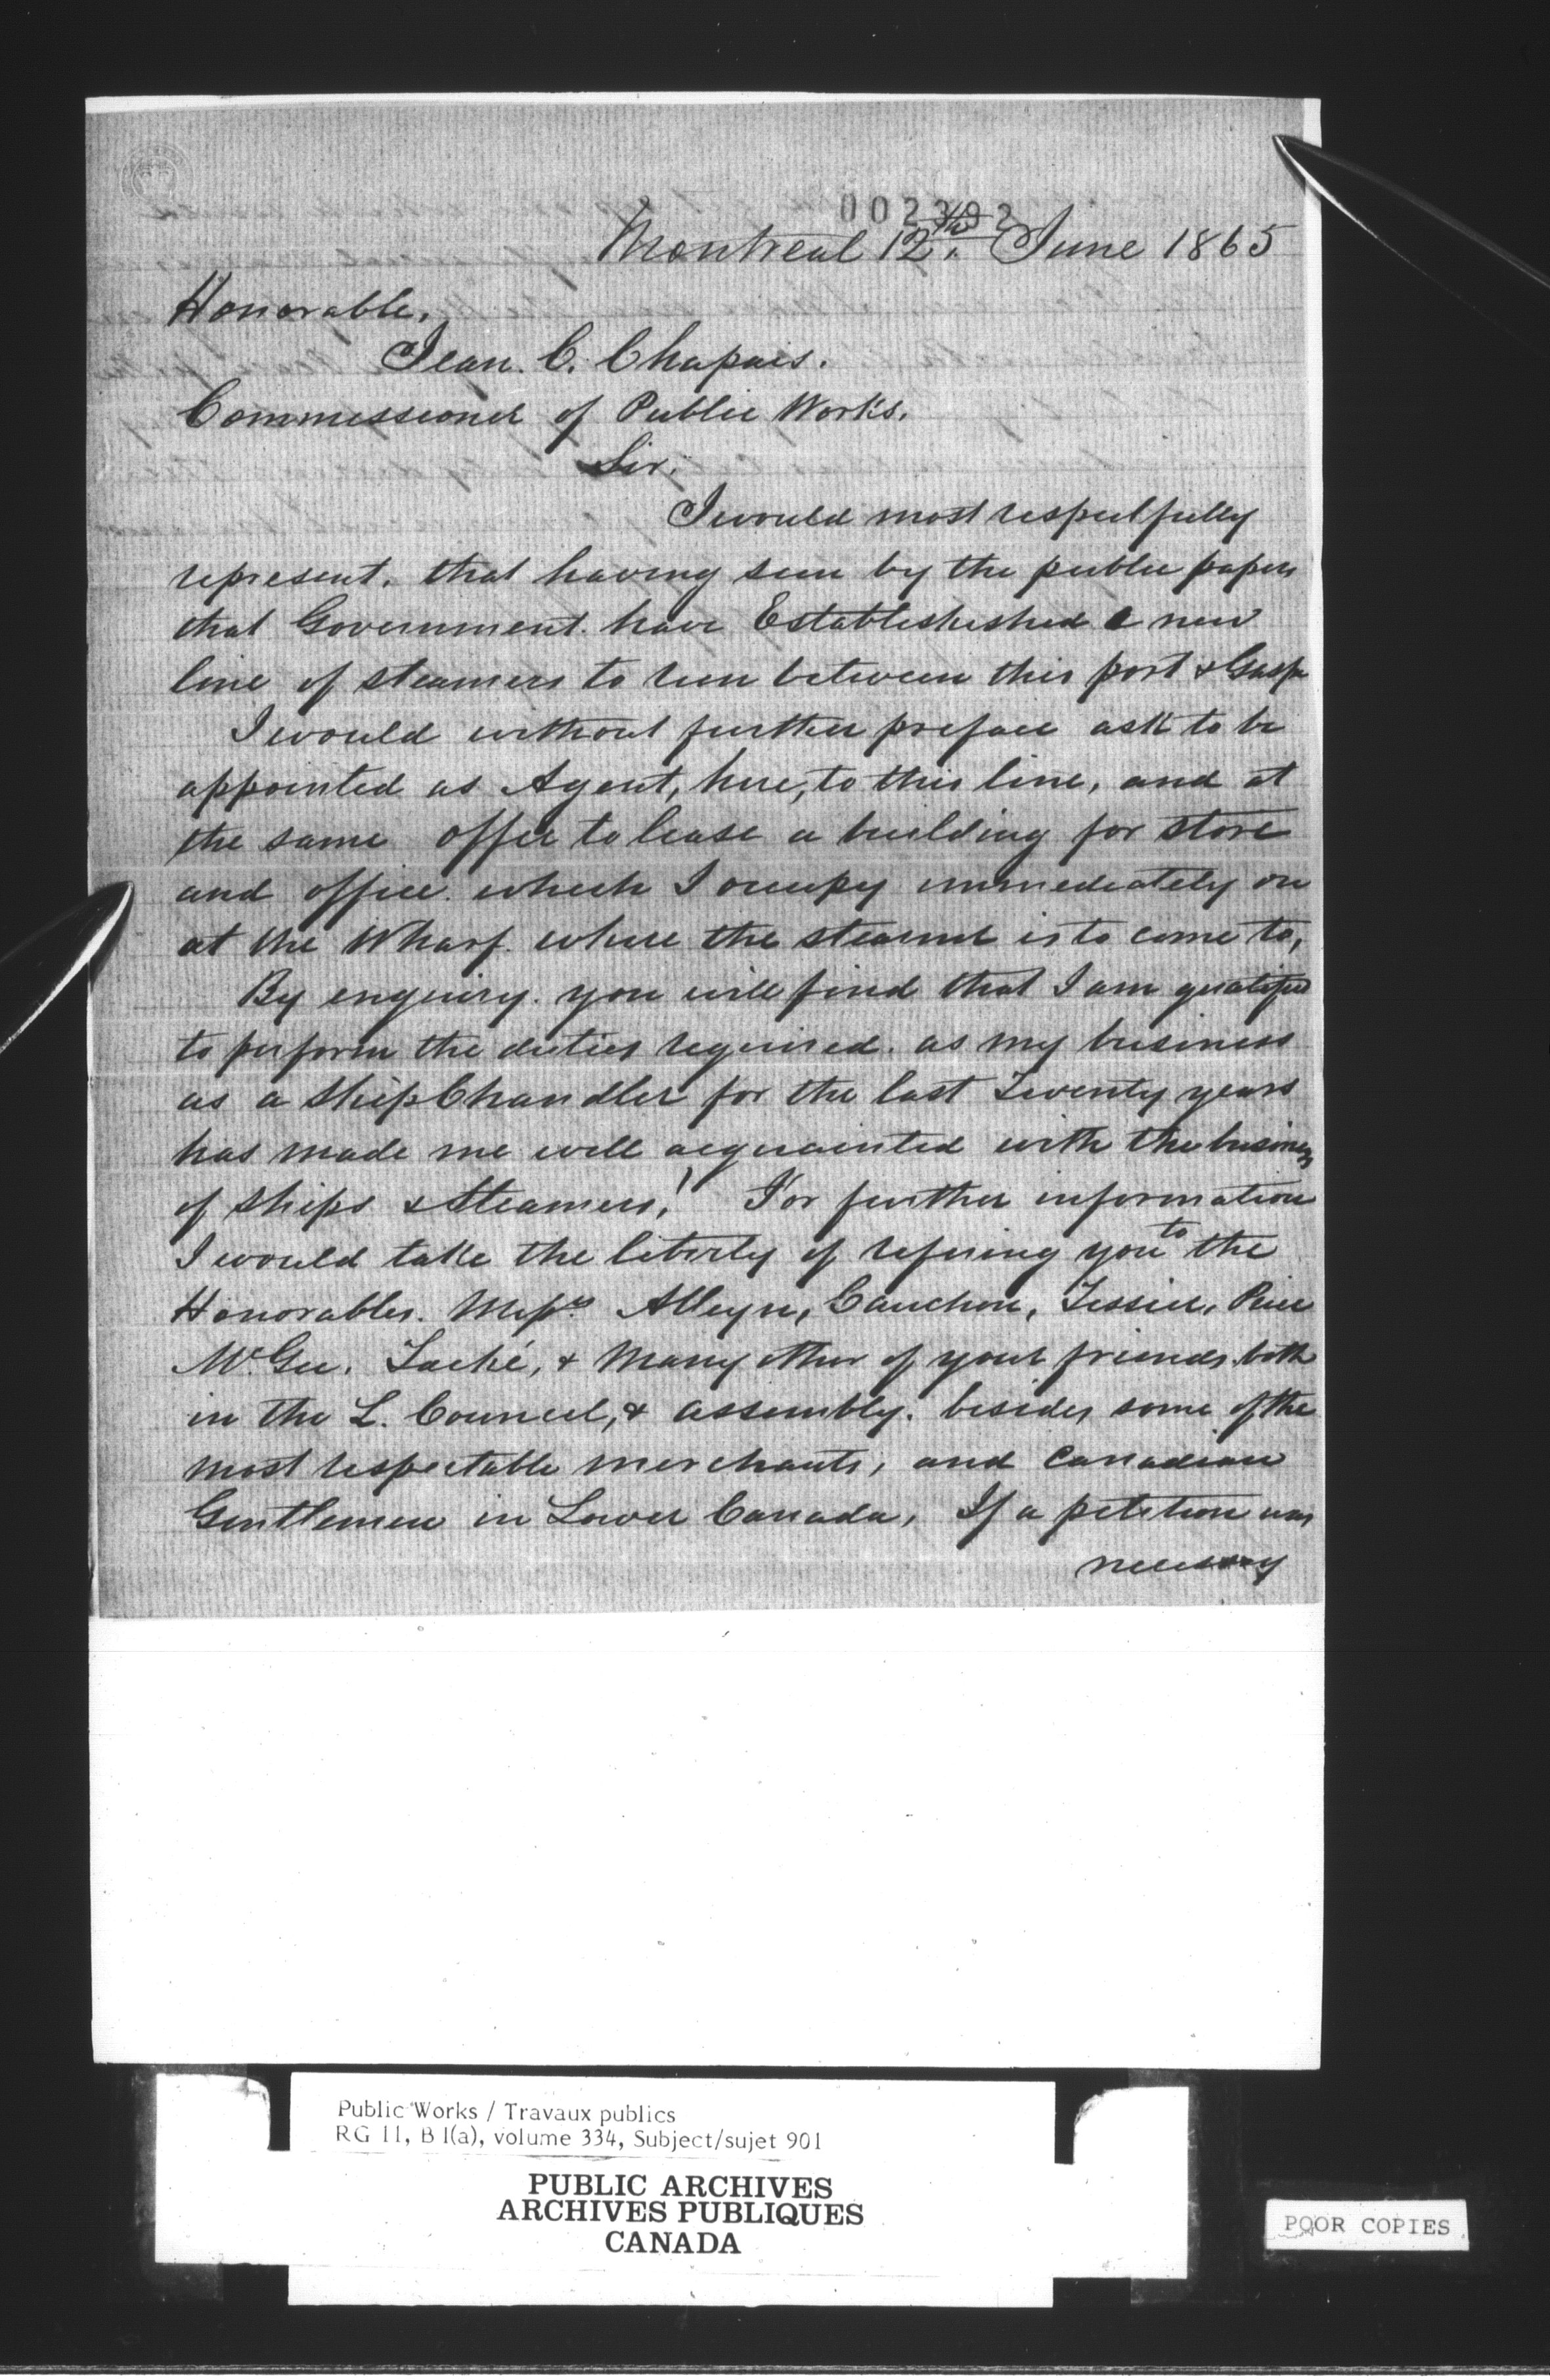 002392
Montreal 12th. June 1865
Honorable.
Jean. C. Chapais.
Commissioner of Public Works.
Sir.
I would most respectfully
represent. that having seen by the public papers
that Government. have Establishished a new
line of steamers to run between this port & Gaspe
I would without further preface ask to be
appointed as Agent, here, to this line, and at
the same offer to lease a building for store
and office. which I occupy immediately on
at the Wharf. where the steamer is to come to,
By enquiry. you will find that I am qualified
to perform the duties required. as my business
as a Ship Chandler for the last Twenty years
has made me well acquainted with the business
of Ships & Steamers! For further information
I would take the liberty of refering you to the
Honorables. Messrs. Alleyn, Cauchon, Tessier, Price
McGee, Taché, & Many other of your friends. both
in the L. Council, & assembly. besides some of the
most respectable merchants, and Canadian
Gentlemen in Lower Canada, If a petition was
necessary
Public Works / Travaux publics
RG 11, B 1(a), volume 334, Subject/sujet 901
PUBLIC ARCHIVES
ARCHIVES PUBLIQUES
CANADA
POOR COPIES